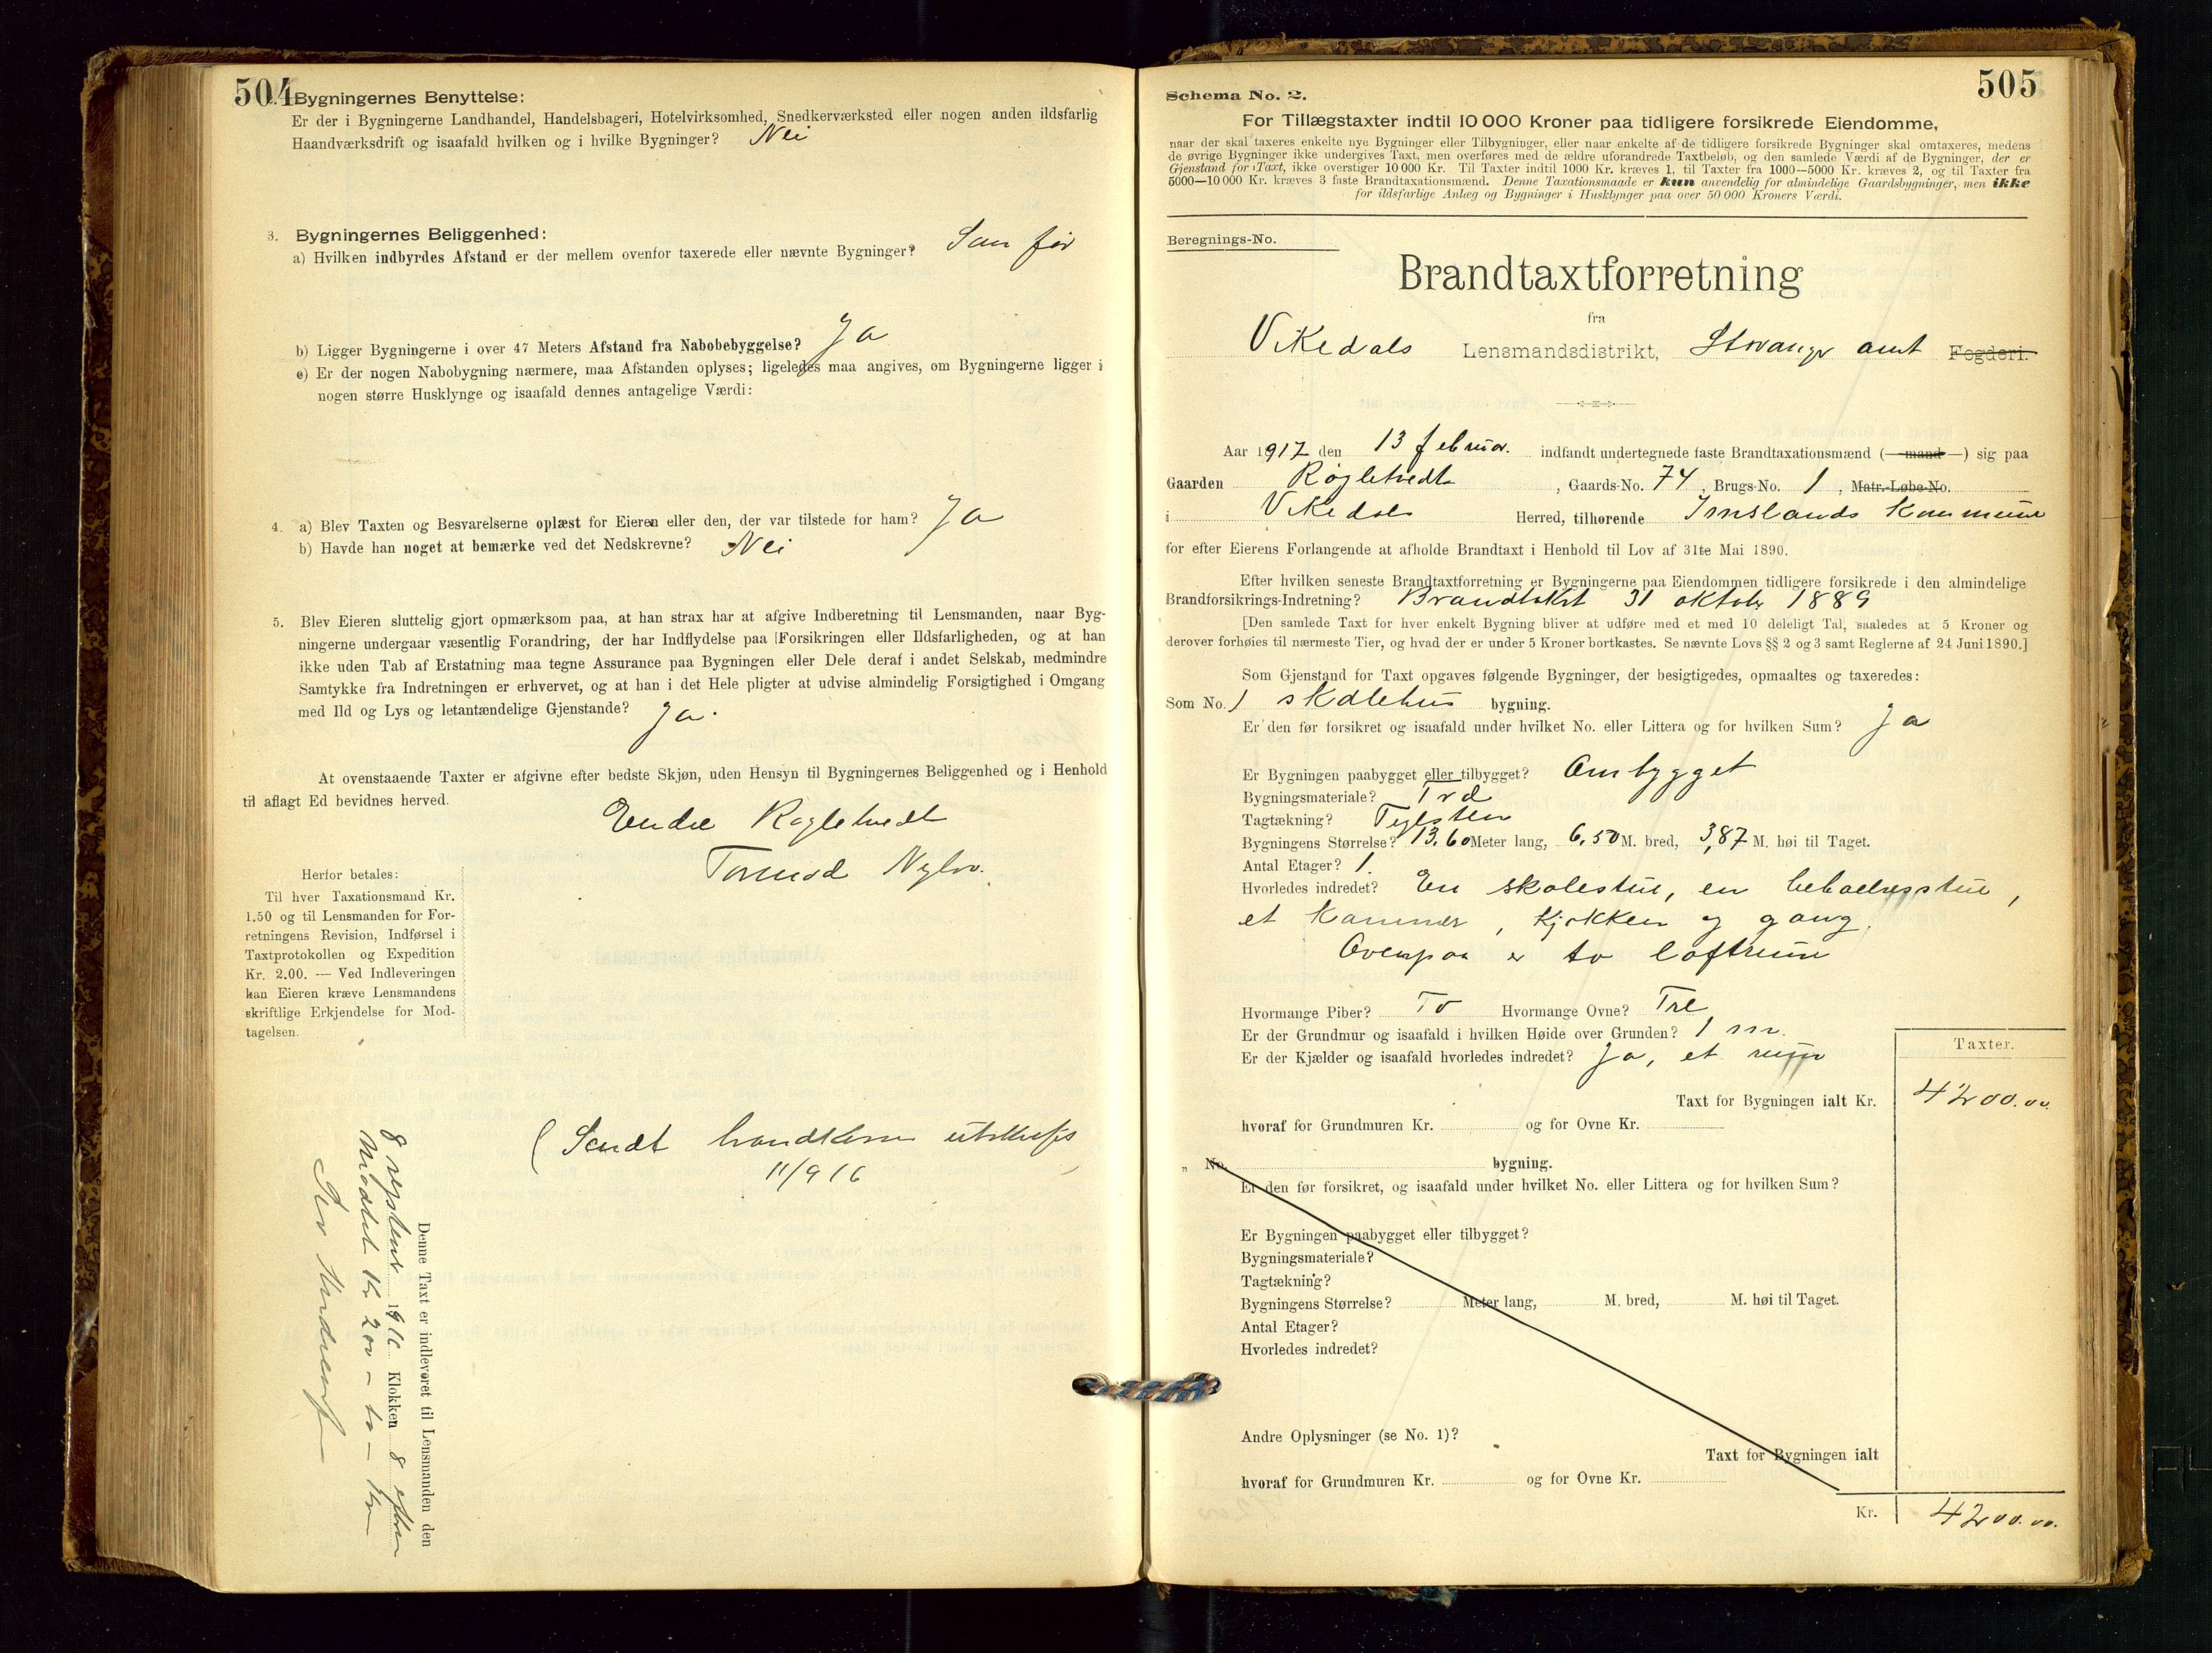 504
Bygningernes Benyttelse:
Er der i Bygningerne Landhandel, Handelsbageri, Hotelvirksomhed, Snedkerværksted eller nogen anden ildsfarlig
Haandværksdrift og isaafald hvilken og i hvilke Bygninger? Nei
3. Bygningernes Beliggenhed:
a) Hvilken indbyrdes Afstand er der mellem ovenfor taxerede eller nævnte Bygninger? Som før
b) Ligger Bygningerne i over 47 Meters Afstand fra Nabobebyggelse? Ja
c) Er der nogen Nabobygning nærmere, maa Afstanden oplyses; ligeledes maa angives, om Bygningerne ligger i
nogen større Husklynge og isaafald dennes antagelige Værdi:
4. a) Blev Taxten og Besvarelserne oplæst for Eieren eller den, der var tilstede for ham? Ja
b) Havde han noget at bemærke ved det Nedskrevne? Nei
5. Blev Eieren sluttelig gjort opmærksom paa, at han strax har at afgive Indberetning til Lensmanden, naar Byg-
ningerne undergaar væsentlig Forandring, der har Indflydelse paa Forsikringen eller Ildsfarligheden, og at han
ikke uden Tab af Erstatning maa tegne Assurance paa Bygningen eller Dele deraf i andet Selskab, medmindre
Samtykke fra Indretningen er erhvervet, og at han i det Hele pligter at udvise almindelig Forsigtighed i Omgang
med Ild og Lys og letantændelige Gjenstande? Ja.
At ovenstaaende Taxter er afgivne efter bedste Skjøn, uden Hensyn til Bygningernes Beliggenhed og i Henhold
til aflagt Ed bevidnes herved.
Endre Røgletvedt
Tormod
Herfor betales:
Til hver Taxationsmand Kr.
1.50 og til Lensmanden for For-
retningens Revision, Indførsel i
Taxtprotokollen og Expedition
Kr. 2.00. — Ved Indleveringen
kan Eieren kræve Lensmandens
skriftlige Erkjendelse for Mod-
tagelsen.
(Sendt
11/9 16
Denne Taxt er indleveret til Lensmanden den
8 1916 Klokken 8
Modtat Kr 200 - to - Kr
505
Schema No. 2.
For Tillægstaxter indtil 10 000 Kroner paa tidligere forsikrede Eiendomme,
naar der skal taxeres enkelte nye Bygninger eller Tilbygninger, eller naar enkelte af de tidligere forsikrede Bygninger skal omtaxeres, medens
de øvrige Bygninger ikke undergives Taxt, men overføres med de ældre uforandrede Taxtbeløb, og den samlede Værdi af de Bygninger, der er
Gjenstand for Taxt, ikke overstiger 10 000 Kr. Til Taxter indtil 1000 Kr. kræves 1, til Taxter fra 1000—5000 Kr. kræves 2, og til Taxter fra
5000—10 000 Kr. kræves 3 faste Brandtaxationsmænd. Denne Taxationsmaade er kun anvendelig for almindelige Gaardsbygninger, men ikke
for ildsfarlige Anlæg og Bygninger i Husklynger paa over 50 000 Kroners Værdi.
Beregnings-No.
Brandtaxtforretning
fra
Vikedals Lensmandsdistrikt, Stavanger amt Fogderi.
Aar 1917 den 13 februar. indfandt undertegnede faste Brandtaxationsmænd (—mand—) sig paa
Gaarden Røgletvedt, Gaards-No. 74, Brugs-No. 1, Matr.-Løbe-No.
i Vikedal Herred, tilhørende Imslands Kommune
for efter Eierens Forlangende at afholde Brandtaxt i Henhold til Lov af 31te Mai 1890.
Efter hvilken seneste Brandtaxtforretning er Bygningerne paa Eiendommen tidligere forsikrede i den almindelige
Brandforsikrings-Indretning? Brandtakst 31 oktobr 1889
[Den samlede Taxt for hver enkelt Bygning bliver at udføre med et med 10 deleligt Tal, saaledes at 5 Kroner og
derover forhøies til nærmeste Tier, og hvad der er under 5 Kroner bortkastes. Se nævnte Lovs §§ 2 og 3 samt Reglerne af 24 Juni 1890.]
Som Gjenstand for Taxt opgaves følgende Bygninger, der besigtigedes, opmaaltes og taxeredes:
Som No. 1 skolehus bygning.
Er den før forsikret og isaafald under hvilket No. eller Littera og for hvilken Sum? Ja
Er Bygningen paabygget eller tilbygget? Ombygget
Bygningsmateriale? Træ
Tagtækning? Teglsten
Bygningens Størrelse? 13,60 Meter lang, 6,50 M. bred, 3,87 M. høi til Taget.
Antal Etager? 1.
Hvorledes indredet? En skolestue, en beboelsesstue,
et kammer, kjøkken og gang.
Ovenpaa er to loftrum
Hvormange Piber? To Hvormange Ovne? Tre
Er der Grundmur og isaafald i hvilken Høide over Grunden? 1 m.
Er der Kjælder og isaafald hvorledes indredet? Ja, et rum
Taxter.
Taxt for Bygningen ialt Kr. 4200.00.
hvoraf for Grundmuren Kr. og for Ovne Kr.
„ No. bygning.
Er den før forsikret, og isaafald under hvilket No. eller Littera og for hvilken Sum?
Er Bygningen paabygget eller tilbygget?
Bygningsmateriale?
Tagtækning?
Bygningens Størrelse? Meter lang, M. bred, M. høi til Taget.
Antal Etager?
Hvorledes indredet?
Andre Oplysninger (se No. 1)?
Taxt for Bygningen ialt
hvoraf for Grundmuren Kr. og for Ovne Kr.
Kr. 4200.00.